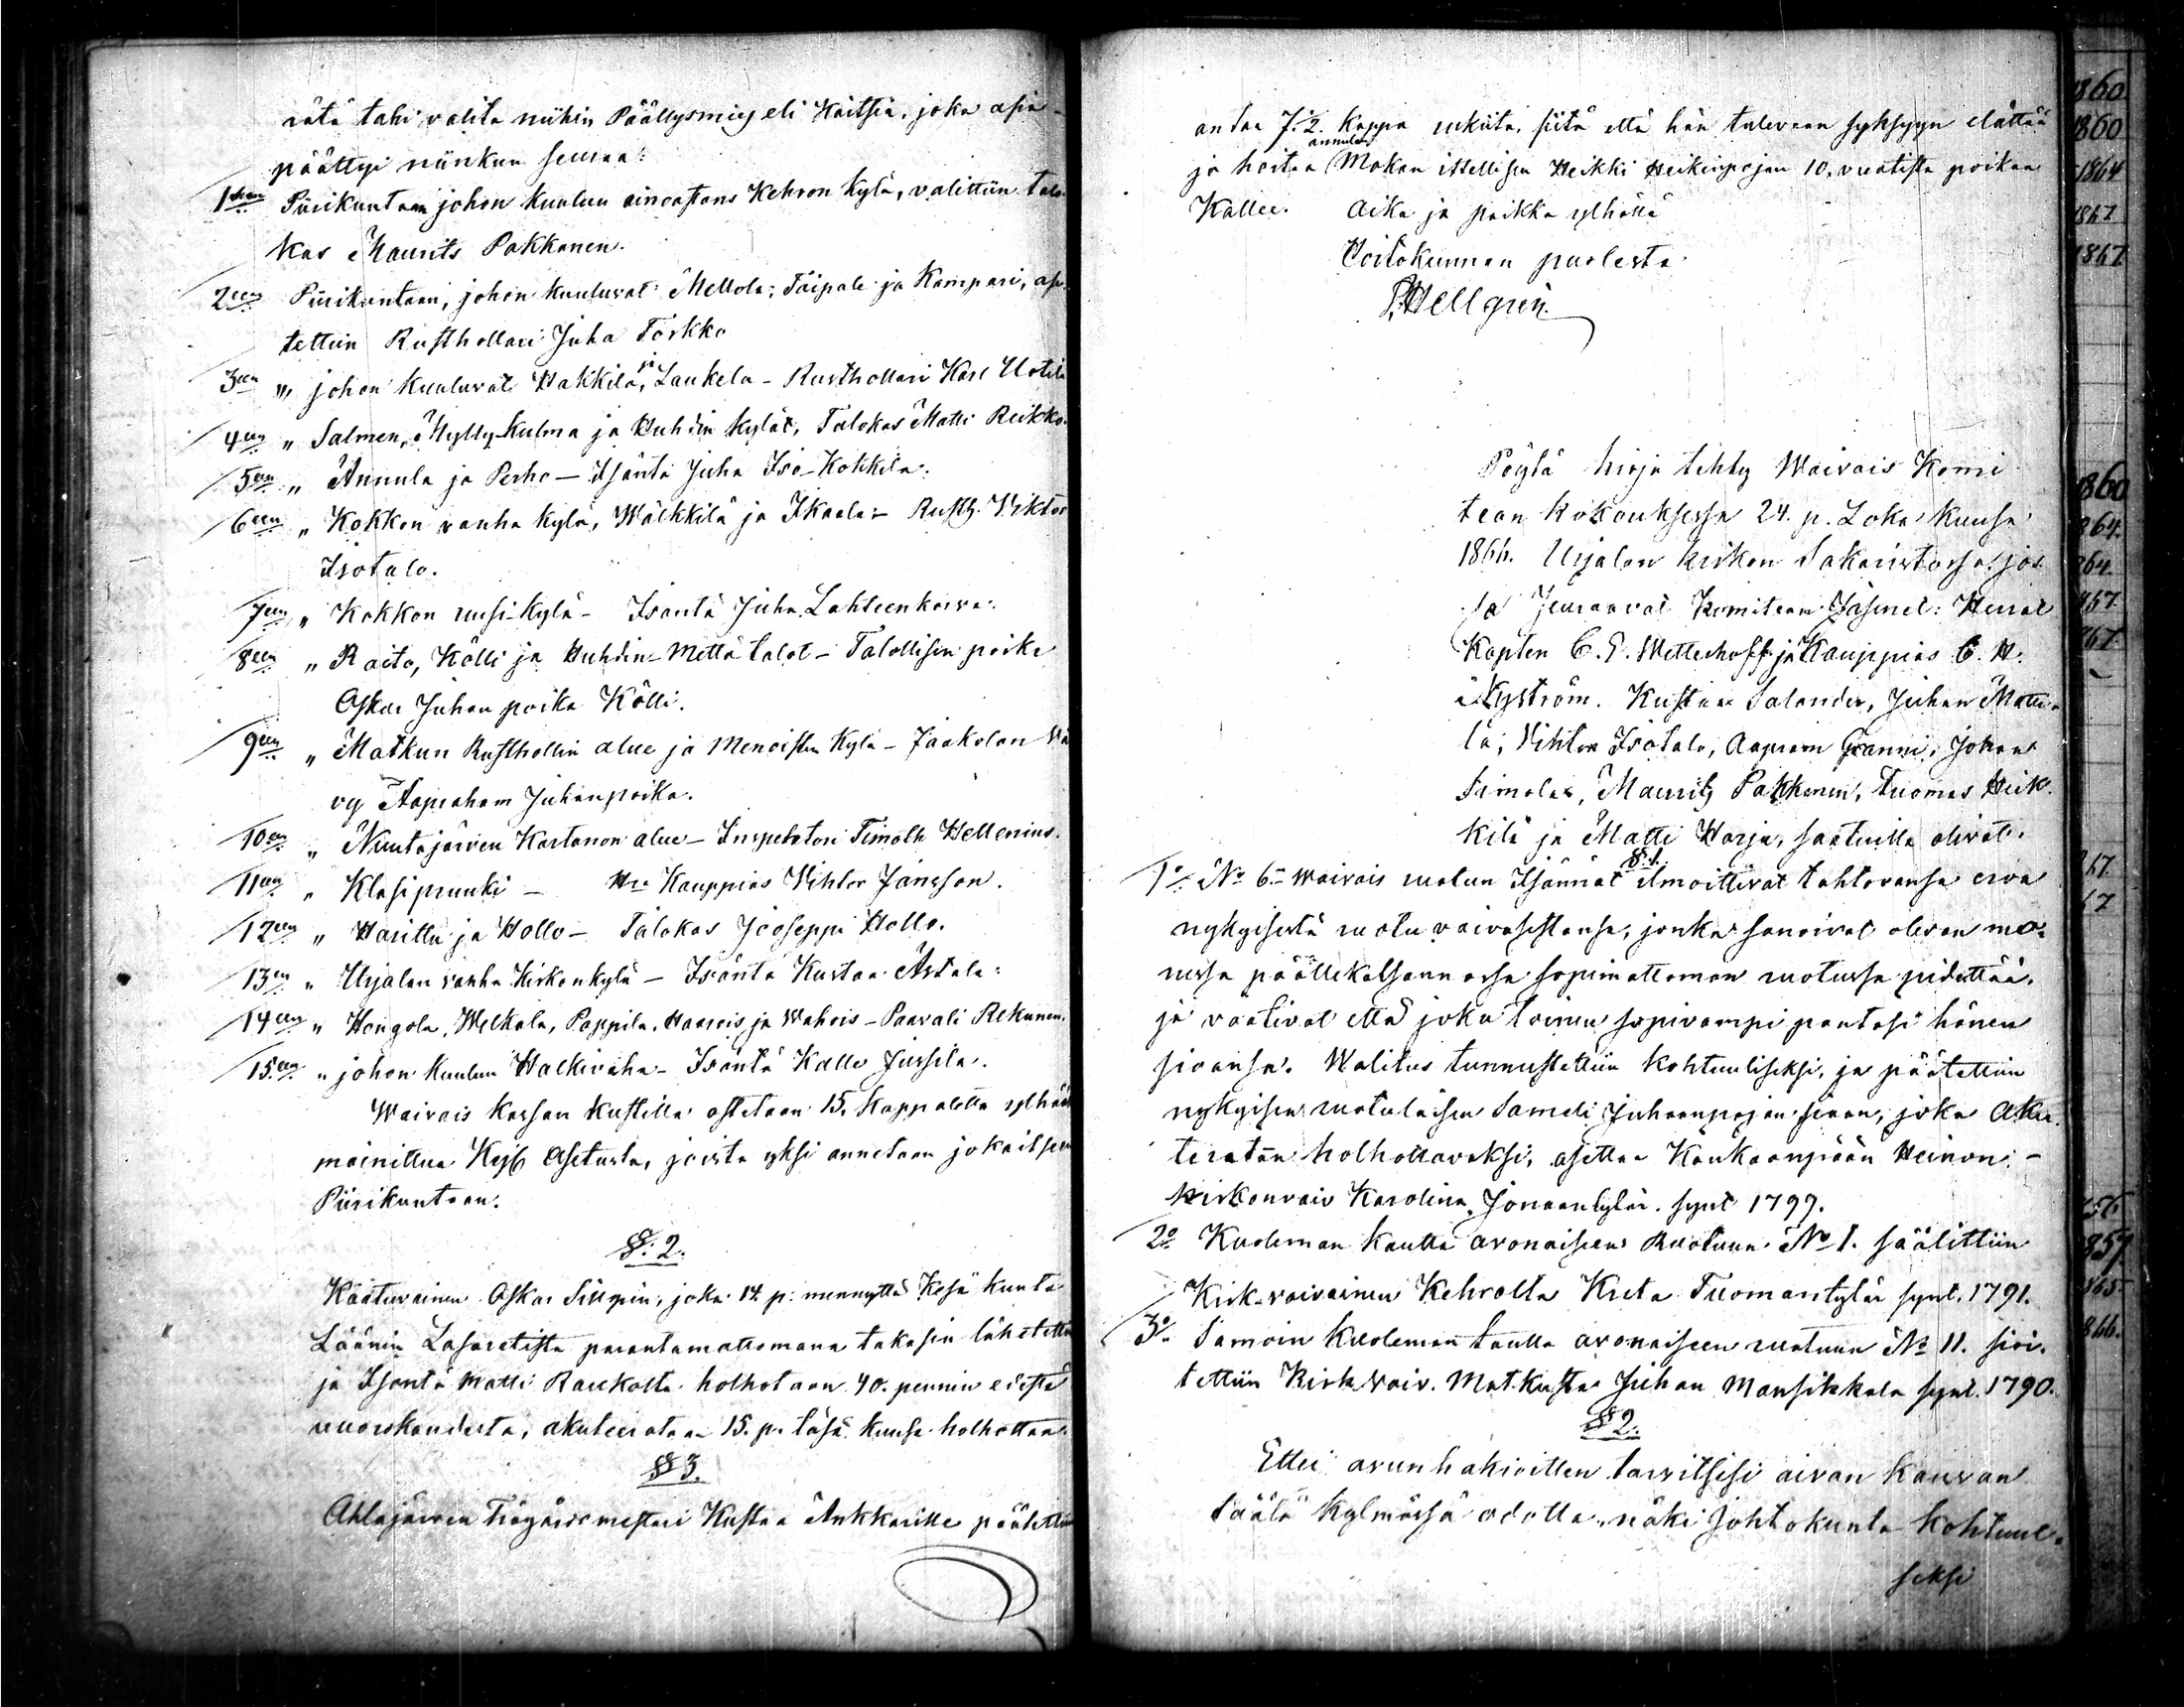 rätä tahi valita niihin Päällysmies eli Kaitsia, joka asia-
päättyi niinkun seuraa:
1seen Piirikuntaan johon kuuluu ainoastans Kehron kylä, valittiin talo-
kas Maurits Pakkanen.
2een Piirikuntaan, johon kuuluvat Mellola, Taipale ja Kampari, ase-
tettiin Rusthollari Juha Torkko
3een „ johon kuuluvat Hakkila, ja Laukela - Rusthollari Karl Uotila
4een „ Salmen, Mylly-kulma ja Huhdin kylät, Talokas Matti Reikko.
5een „ Annula ja Perho — Isäntä Juha Iso-Kokkila.
6een „ Kokkon vanha kylä, Wälkkilä ja Ikaala - Rusth. Viktor
Isotalo.
7een „ Kokkon uusi-kylä - Isäntä Juha Lahteenkorva.
8een „ Raito, Kölli ja Huhdin-Mettä talot - Talollisen poika
Oskar Juhan poika Kölli.
9een „ Matkun Rusthollin alue ja Menoisten kylä - Jaakolan Wä
vy Aapraham Juhanpoika.
10een „ Nuutajärven Kartanon alue - Inspehtori Timoth Hellenius.
11een „ Klasipruuki — Hra Kauppias Vihtor Jansson.
12een „ Harittu ja Hollo - Talokas Jooseppi Hollo.
13en „ Urjalan vanha Kirkonkylä - Isäntä Kustaa Astala.
14een „ Hongola, Welkala, Pappila, Haarois ja Wahois - Paavali Rekunen.
15een „ johon kuuluu Halkivaha - Isäntä Kalle Jussila.
Waivais kassan kustilla ostetaan 15. kappaletta ylhää
mainittua Keis. Asetusta, joista yksi annetaan jokaitseen
Piirikuntaan.
§. 2.
Kaatuvainen Oskar Simpin, joka 14 p. mennyttä Kesä kuuta
Läänin Lasaretista parantamattomana takasin lähetettii
ja Isäntä Matti Raukolta holhotaan 40. pennin edestä
vuorokaudesta, akuteerataan 15. p. tasä kuusa holhottaa.
§ 3.
Ahlajärven Trägårdsmestari Kustaa Ankkarille päätettiin
antaa 7. 1/2. kappa rukiita, siitä että hän tulevaan syksyyn elättää
annulan
ja hoitaa Mokan ittellisen Heikki Heikinpojan 10. vuotista poikaa
Kallee. Aika ja paikka ylhällä
Hoitokunnan puolesta
P. Hellgrén.
Pöytä kirja tehty Waivais Komi
tean kokouksessa 24. p. Loka kuusa
1866. Urjalan kirkon Sakaristossa, jos
sa seuraavat Komitean Jäsenet: Herrat
Kapten C. G. Wetterhoff ja Kauppias C. H.
Nyström. Kustaa Salander, Juhan Matti-
la, Vihtor Isotalo, Aapram Granni, Johan
Simolas, Maurits Pakkanen, Tuomas Heik-
kilä ja Matti Harja, saatuilla olivat.
§. 1.
1o No 6. Waivais ruotun Isännät ilmoittivat tahtovansa erva
nykyisestä ruotu vaivasestansa, jonka sanoivat olevan mo-
nessa päällekatsannossa sopimattoman ruotussa pidettää,
ja vaativat että joku toinen sopivampi pantasi hänen
siaansa. Walitus tunnustettiin kohtuuliseksi, ja päätettiin
nykyisen ruotulaisen Sameli Juhaanpojan siaan, joka Aku-
terataan holhottavaksi, asettaa Kankaanpään Heinon
kirkonvaiv Karolina Jonaantytär. synt 1797.
2o Kuoleman kautta avonaiseen Ruotuun No 1. säälittiin
Kirk. vaivainen Kehrolta Kreta Tuomantytär synt. 1791.
3o Samoin kuoleman tautta avonaiseen ruotuun No 11. sioi-
tettiin Kirk. vaiv. Matkusta Juhan Mansikkala synt. 1790.
§ 2.
Ettei avunhakioitten tarvittsisi aivan kauvan
täälä kylmässä odotta, näki Johtokunta kohtuul-
seksi
1860
1860
1864
1867
1867
1860
1864.
864
867
867
867
67
856
1857
1865.
1866.